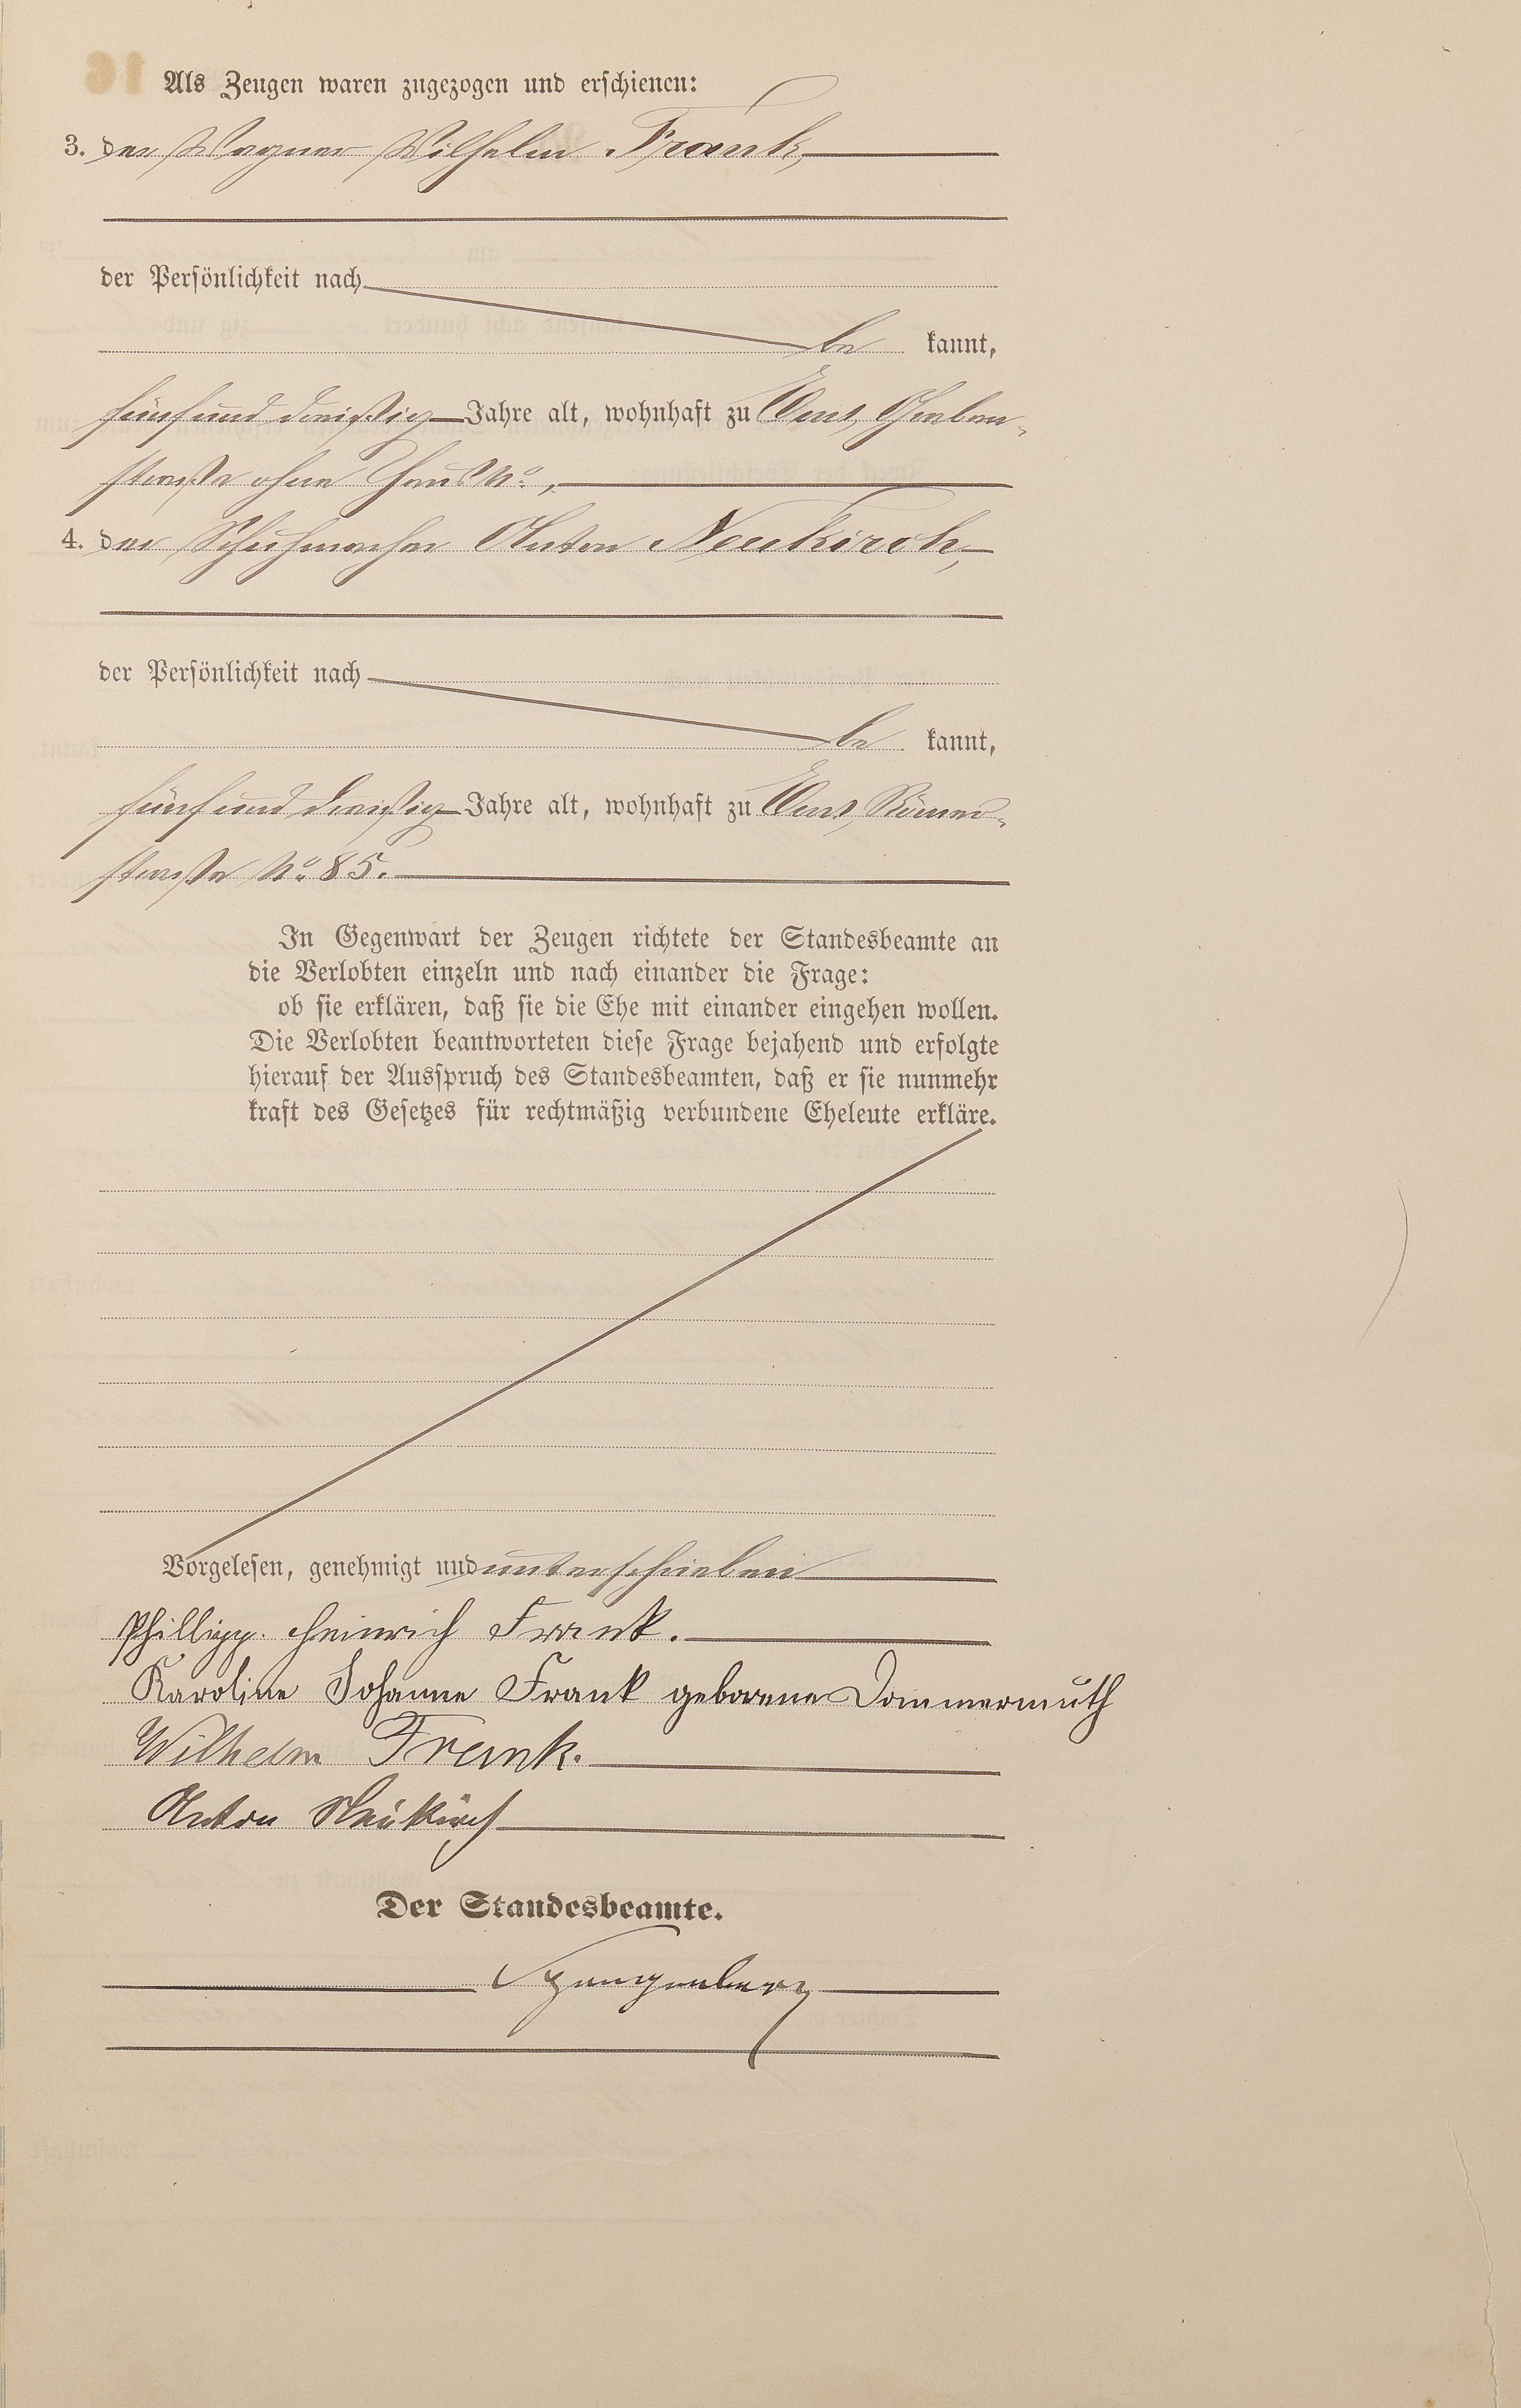 Als Zeugen waren zugezogen und erschienen:
3. der Wagner Wilhelm Frank,
der Persönlichkeit nach
be kannt,
fünfund dreißig Jahre alt, wohnhaft zu Ems, Graben-
straße ohne Haus No.,
4. der Schuhmacher Anton Neukirch,
der Persönlichkeit nach
be kannt,
fünfund dreißig Jahre alt, wohnhaft zu Ems, Römer-
straße No. 85.
In Gegenwart der Zeugen richtete der Standesbeamte an
die Verlobten einzeln und nach einander die Frage:
ob sie erklären, daß sie die Ehe mit einander eingehen wollen.
Die Verlobten beantworteten diese Frage bejahend und erfolgte
hierauf der Ausspruch des Standesbeamten, daß er sie nunmehr
kraft des Gesetzes für rechtmäßig verbundene Eheleute erkläre.
Vorgelesen, genehmigt und unterschrieben
Phillipp. Heinrich Frank.
Karoline Johanne Frank geborene Dommermuth
Wilhelm Frank.
Anton Neukirch
Der Standesbeamte.
Spangenberg